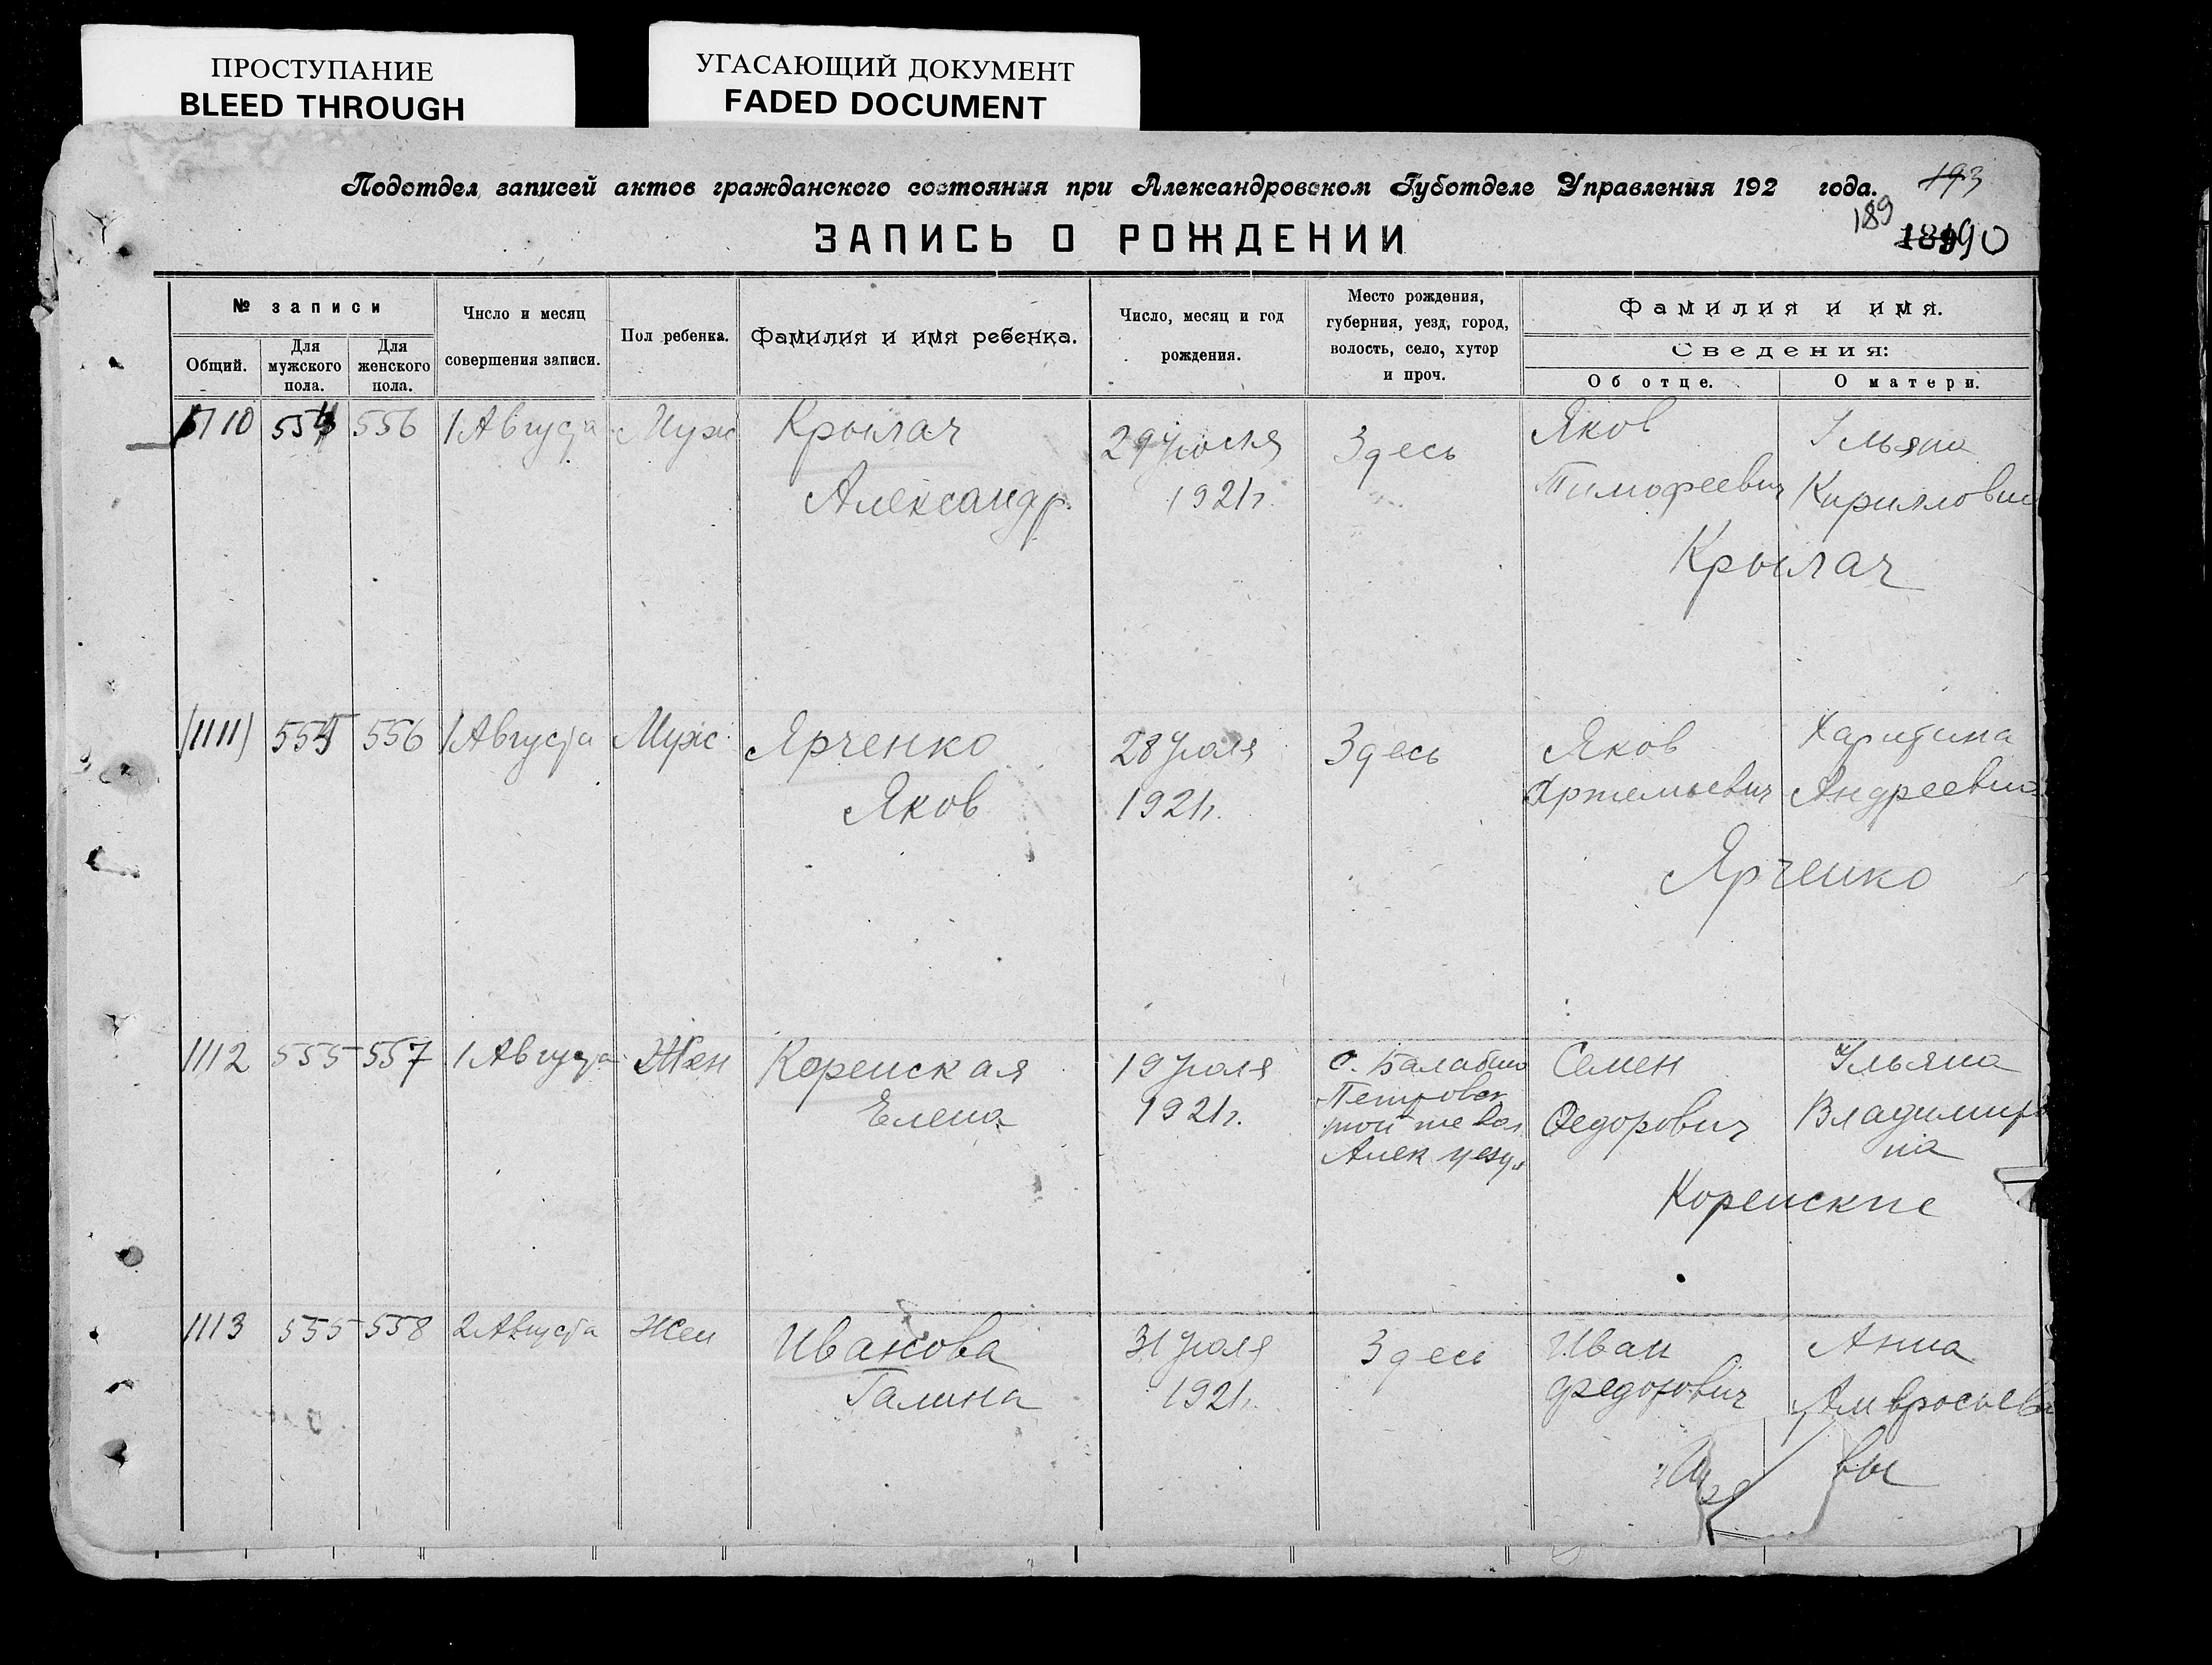 ПРОСТУПАНИЕ
BLEED THROUGH
УГАСАЮЩИЙ ДОКУМЕНТ
FADED DOCUMENT
Подотдел записей актов гражданского состояния при Александровском Губотделе Управления 192 года.
193
189
190
ЗАПИСЬ О РОЖДЕНИИ
№ записи
Общий.
Для мужского пола.
Для женского пола.
Число и месяц совершения записи.
Пол ребенка.
Фамилия и имя ребенка.
Число, месяц и год рождения.
Место рождения, губерния, уезд, город, волость, село, хутор и проч.
Фамилия и имя.
Сведения:
Об отце.
О матери.
1110 554 556 1 Августа Муж Крылач 29 Июля Здесь Яков Ульяна
Александр 1921г. Тимофеевич Кирилловна
Крылач
1111 555 556 1 Августа Муж Ярченко 28 Июля Здесь Яков Харитина
Яков 1921г. Артемьевич Андреевна
Ярченко
1112 555 557 1 Августа Жен Коренская 19 Июля с. Балабино Семен Ульяна
Елена 1921г. Петровск Федорович Владимир
той же вол на
Алек уезд
Коренские
1113 555 558 2 Августа Жен Иванова 31 Июля Здесь Иван Анна
Галина 1921г. Федорович Амвросиев
вы